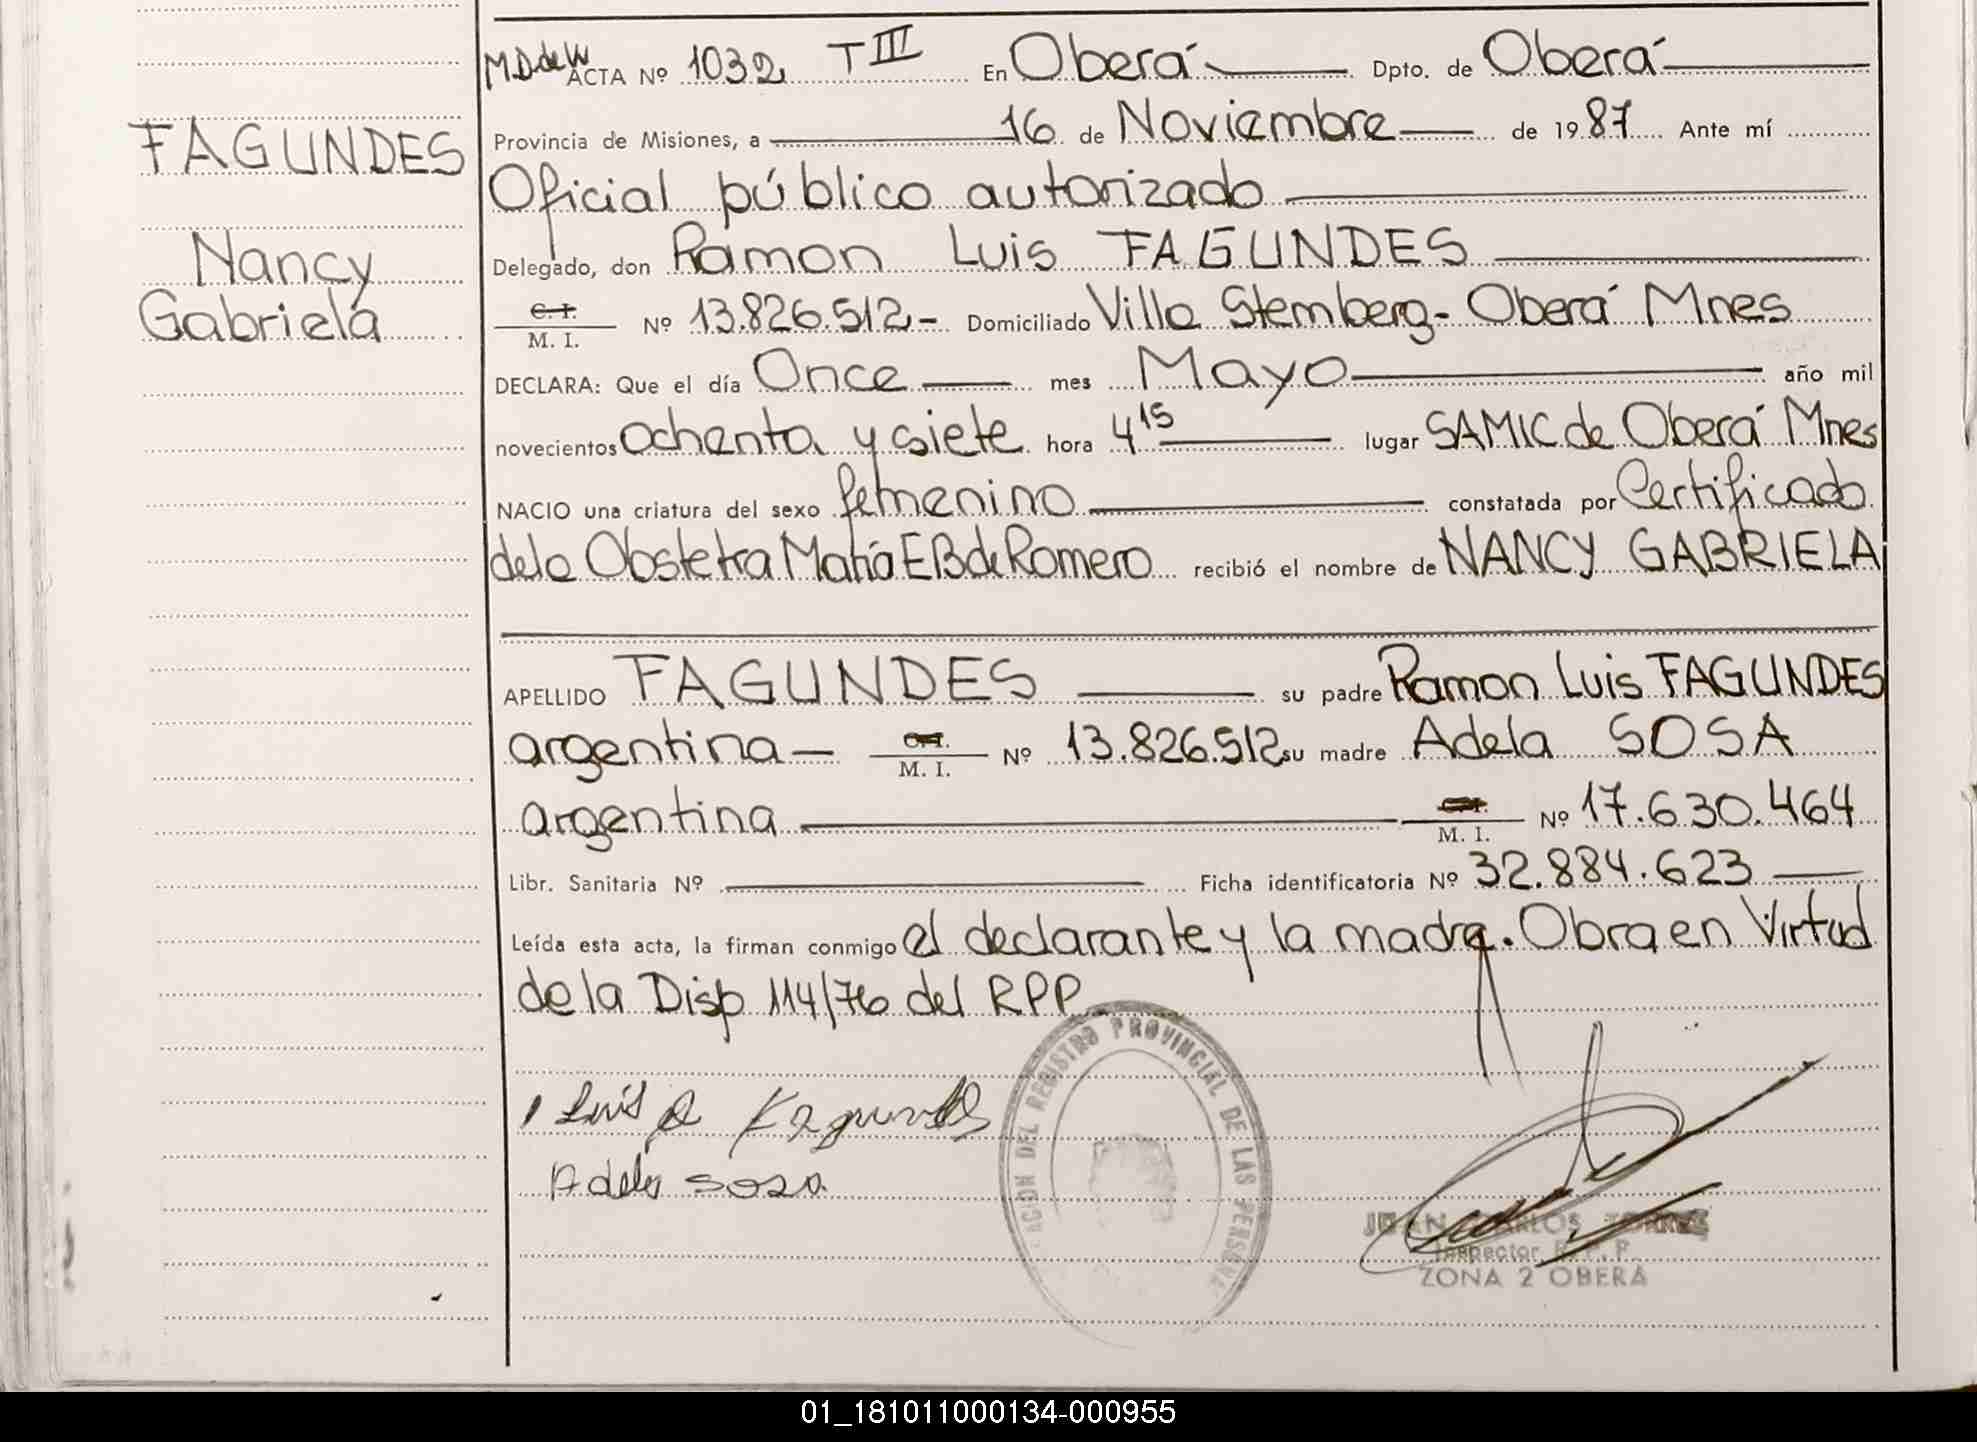 M.D.de W ACTA Nº 1032 T III En Oberá Dpto. de Oberá
Provincia de Misiones, a 16 de Noviembre de 19 87 Ante mí
FAGUNDES
Oficial público autorizado
Nancy
Delegado, don Ramon Luis FAGUNDES
Gabriela
C. I. M. I. Nº 13.826.512,- Domiciliado Villa Stemberg - Oberá Mnes
DECLARA: Que el día Once mes Mayo año mil
novecientos ochenta y siete hora 4 15 lugar SAMIC de Oberá Mnes
NACIO una criatura del sexo femenino constatada por Certificado
de la Obstetra María E B de Romero recibió el nombre de NANCY GABRIELA
APELLIDO FAGUNDES su padre Ramon Luis FAGUNDES
argentina - M. I. Nº 13.826.512 su madre Adela SOSA
argentina M. I. Nº 17.630.464
Libr. Sanitaria Nº Ficha identificatoria Nº 32.884.623
Leída esta acta, la firman conmigo el declarante y la madre. Obra en Virtud
de la Disp 114/76 del RPP
REGISTRO PROVINCIAL DE LAS PERSONAS
Luis R Fagundes
Adela Sosa
JUAN CARLOS TORRES
Inspector R. P. P.
ZONA 2 OBERA
01_181011000134-000955